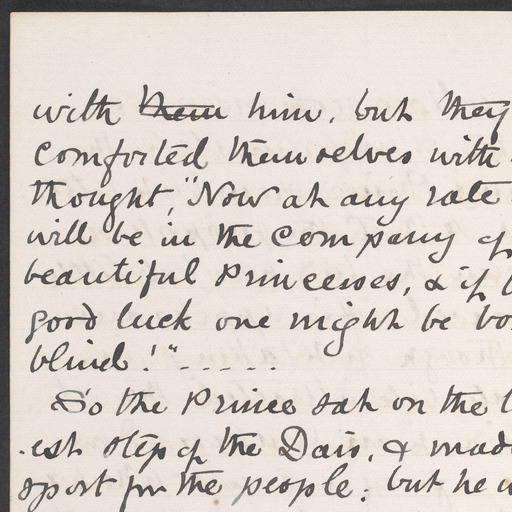 with ~~them~~ him, but they
comforted themselves with
thought, "Now at any rate
will be in the company of
beautiful Princesses, & if
good luck one might be
blind!" - - - - -
So the Prince sat on the
est step of the Dais, & made
sport for the people; but he